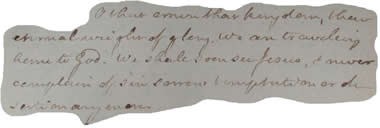 O that
eternal weight of glory. We are traveling
home to God. We shall soon see Jesus, & never
complain of sin sorrow temptation or de
sertion any more